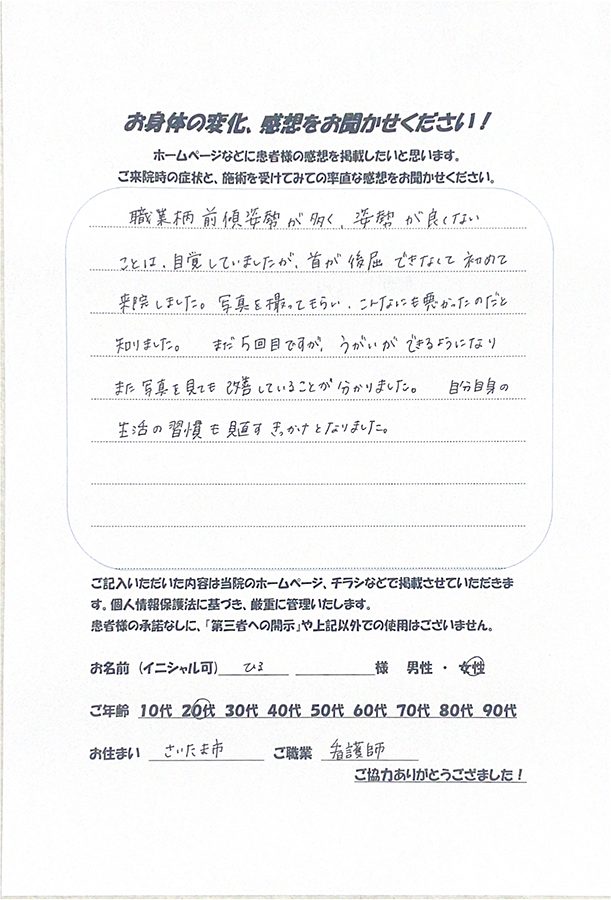 お身体の変化、感想をお聞かせください！
ホームページなどに患者様の感想を掲載したいと思います。
ご来院時の症状と、施術を受けてみての率直な感想をお聞かせください。
職業柄 前傾姿勢が多く、姿勢が良くない
ことは、自覚していましたが、首が後屈できなくて初めて
来院しました。写真を撮ってもらい、こんなにも悪かったのだと
知りました。 まだ5回目ですが、うがいができるようになり
また写真を見ても改善していることが分かりました。 自分自身の
生活の習慣も見直すきっかけとなりました。
ご記入いただいた内容は当院のホームページ、チラシなどで掲載させていただきま
す。個人情報保護法に基づき、厳重に管理いたします。
患者様の承諾なしに、「第三者への開示」や上記以外での使用はございません。
お名前（イニシャル可） ひろ 様 男性 ・ 女性
ご年齢 10代 20代 30代 40代 50代 60代 70代 80代 90代
お住まい さいたま市 ご職業 看護師
ご協力ありがとうござました！